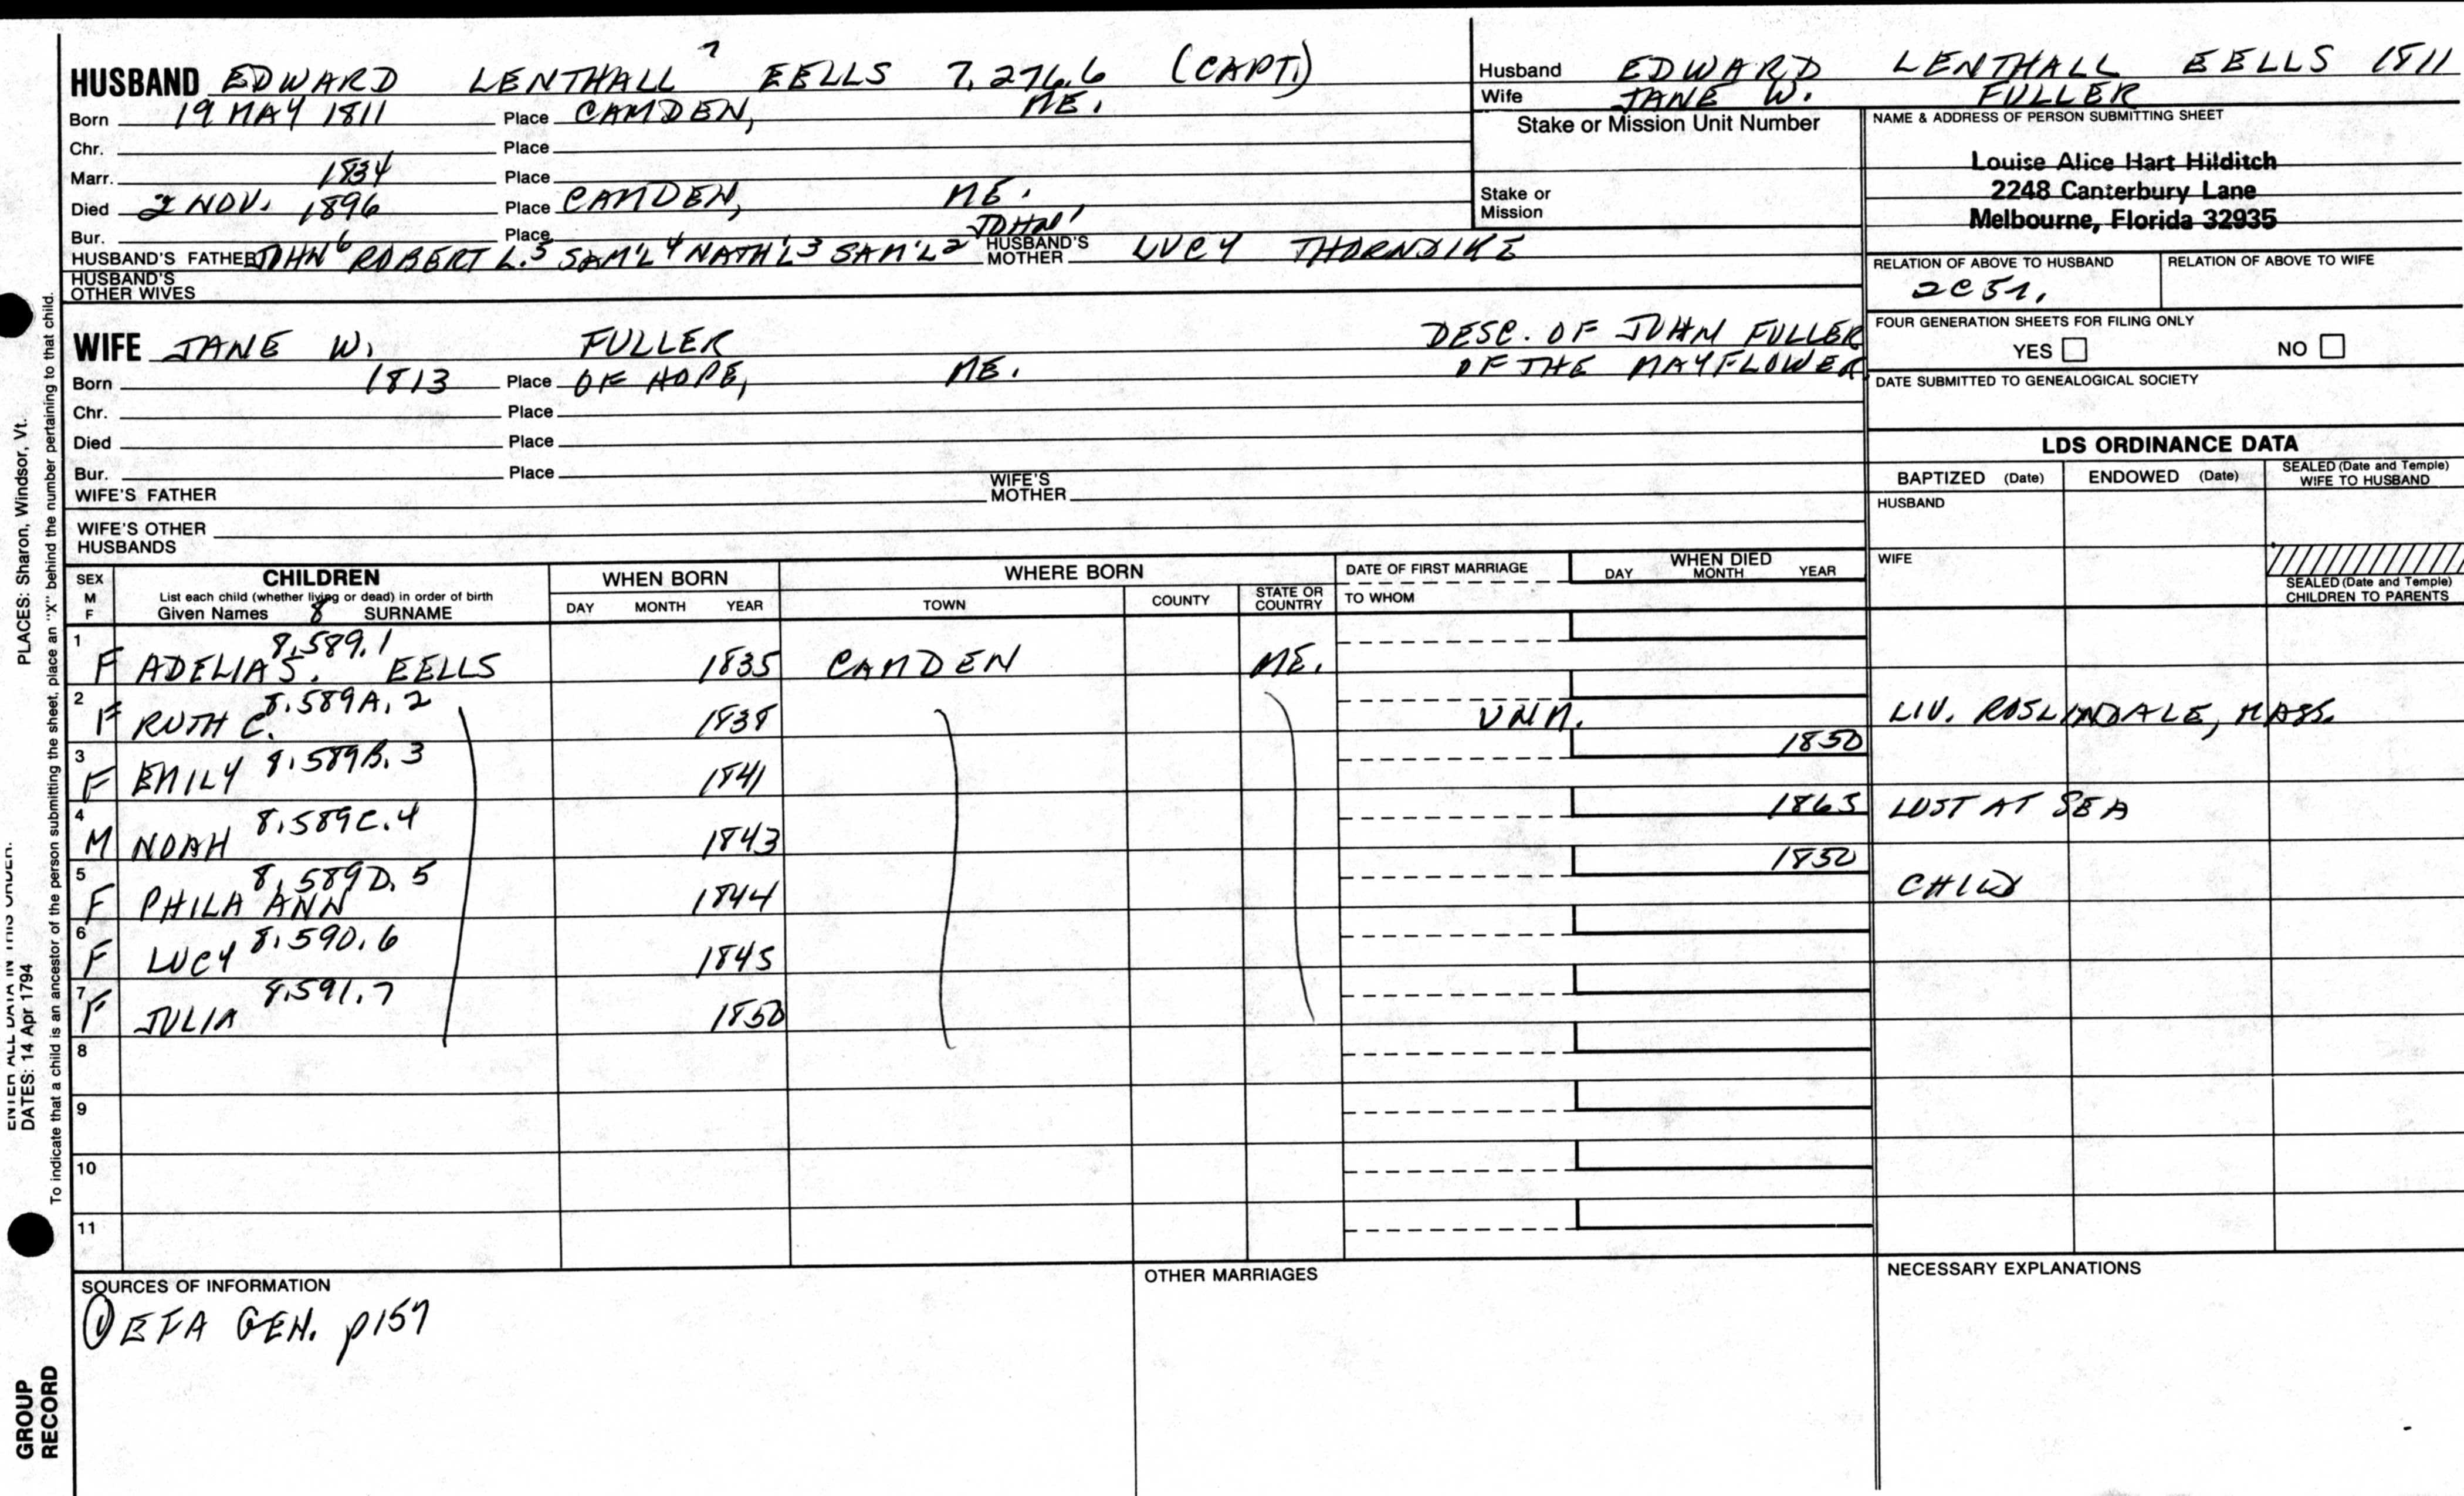 HUSBAND EDWARD LENTHALL 7 EELLS 7.276.6 (CAPT.)
Born 19 MAY 1811 Place CAMDEN, ME.
Chr. Place
Marr. 1834 Place
Died 2 NOV. 1896 Place CAMDEN, ME.
Bur. Place
HUSBAND'S FATHER JOHN 6 ROBERT L. 5 SAM'L 4 NATH'L 3 SAM'L 2 JOHN 1 HUSBAND'S MOTHER LUCY THORNDIKE
HUSBAND'S OTHER WIVES
WIFE JANE W. FULLER DESC. OF JOHN FULLER
OF THE MAYFLOWER
Born 1813 Place OF HOPE, ME.
Chr. Place
Died Place
Bur. Place
WIFE'S FATHER WIFE'S MOTHER
WIFE'S OTHER HUSBANDS
Husband EDWARD LENTHALL EELLS 1811
Wife JANE W. FULLER
Stake or Mission Unit Number
Stake or Mission
NAME & ADDRESS OF PERSON SUBMITTING SHEET
Louise Alice Hart Hilditch
2248 Canterbury Lane
Melbourne, Florida 32935
RELATION OF ABOVE TO HUSBAND RELATION OF ABOVE TO WIFE
FOUR GENERATION SHEETS FOR FILING ONLY
YES NO
DATE SUBMITTED TO GENEALOGICAL SOCIETY
LDS ORDINANCE DATA
BAPTIZED (Date) ENDOWED (Date) SEALED (Date and Temple) WIFE TO HUSBAND
HUSBAND
WIFE
SEALED (Date and Temple) CHILDREN TO PARENTS
SEX M F CHILDREN WHEN BORN WHERE BORN DATE OF FIRST MARRIAGE WHEN DIED
List each child (whether living or dead) in order of birth
Given Names 8 SURNAME DAY MONTH YEAR TOWN COUNTY STATE OR COUNTRY TO WHOM DAY MONTH YEAR
1 F ADELIA S. 8.589.1 EELLS 1835 CAMDEN ME.
2 F RUTH C. 8.589A.2 1838 UNM. LIV. ROSLINDALE, MASS.
3 F EMILY 8.589B.3 1841 1850
4 M NOAH 8.589C.4 1843 1863 LOST AT SEA
5 F PHILA ANN 8.589D.5 1844 1850 CHILD
6 F LUCY 8.590.6 1845
7 F JULIA 8.591.7 1850
8
9
10
11
SOURCES OF INFORMATION OTHER MARRIAGES NECESSARY EXPLANATIONS
① EFA GEN. p157
PLACES: Sharon, Windsor, Vt.
ENTER ALL DATA IN THIS ORDER:
DATES: 14 Apr 1794
To indicate that a child is an ancestor of the person submitting the sheet, place an "X" behind the number pertaining to that child.
GROUP
RECORD